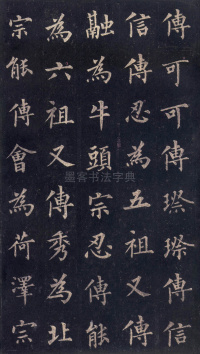 傳可可傳璨璨傳信
信傳忍為五祖又傳
融為牛頭宗忍傳能
為六祖又傳秀為北
宗能傳會為荷澤宗
墨客书法字典